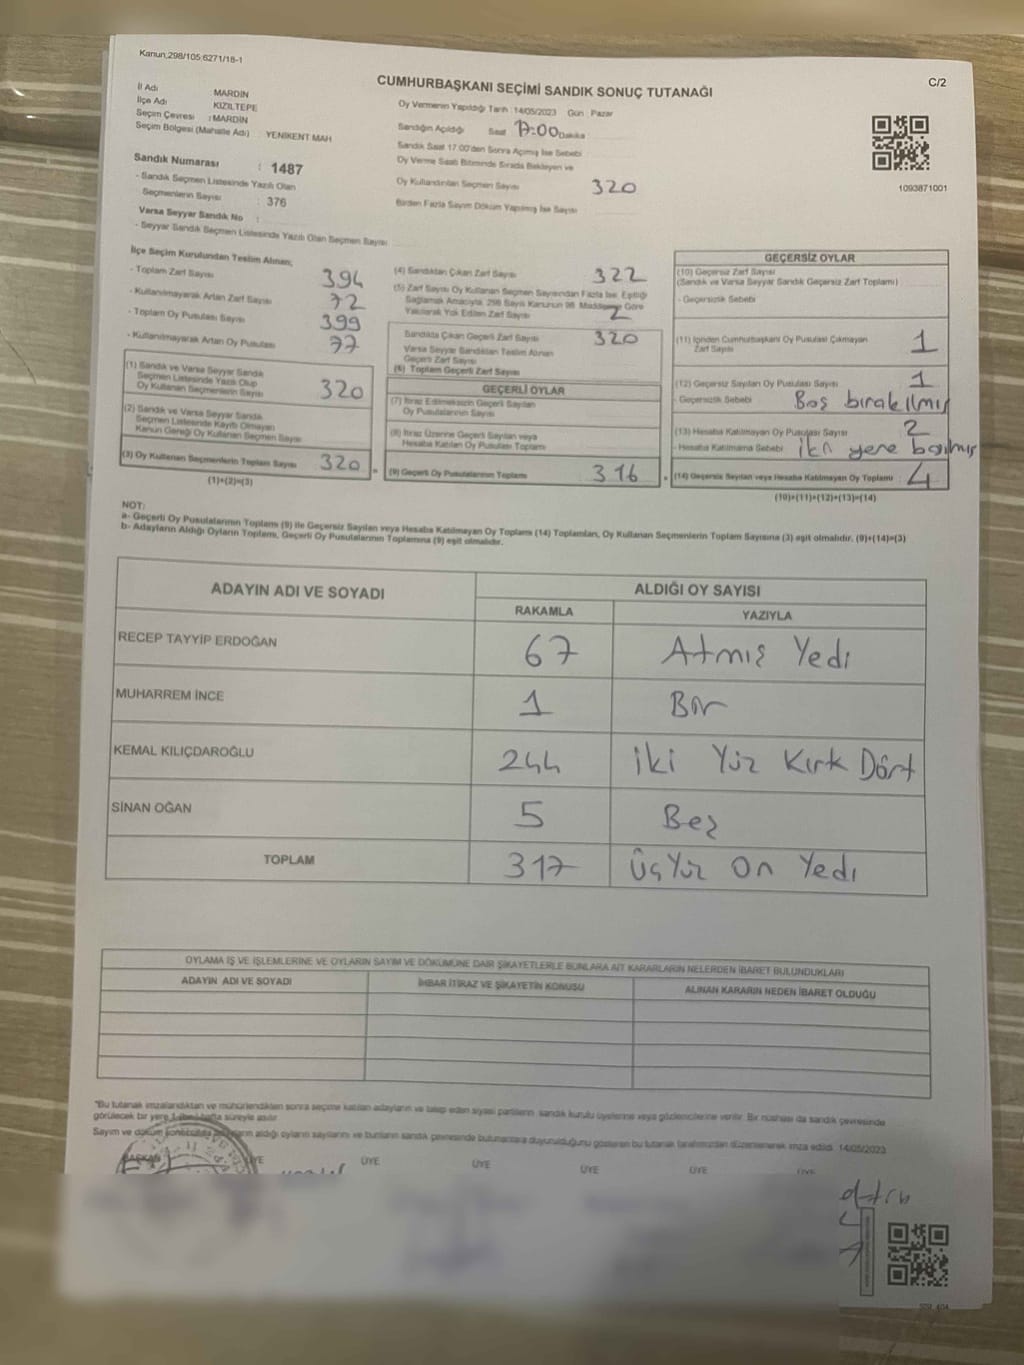 Kanun;298/105;6271/18-1
CUMHURBAŞKANI SEÇİMİ SANDIK SONUÇ TUTANAĞI
C/2
İl Adı MARDİN
İlçe Adı KIZILTEPE
Seçim Çevresi : MARDİN
Seçim Bölgesi (Mahalle Adı) : YENİKENT MAH
Sandık Numarası : 1487
- Sandık Seçmen Listesinde Yazılı Olan
Seçmenlerin Sayısı : 376
Varsa Seyyar Sandık No :
- Seyyar Sandık Seçmen Listesinde Yazılı Olan Seçmen Sayısı
Oy Vermenin Yapıldığı Tarih : 14/05/2023 Gün : Pazar
Sandığın Açıldığı Saat 17:00 Dakika
Sandık Saat 17.00'den Sonra Açılmış İse Sebebi
Oy Verme Saati Bitiminde Sırada Bekleyen ve
Oy Kullandırılan Seçmen Sayısı 320
Birden Fazla Sayım Döküm Yapılmış İse Sayısı
1093871001
İlçe Seçim Kurulundan Teslim Alınan;
- Toplam Zarf Sayısı 394
- Kullanılmayarak Artan Zarf Sayısı 72
- Toplam Oy Pusulası Sayısı 399
- Kullanılmayarak Artan Oy Pusulası 77
(1) Sandık ve Varsa Seyyar Sandık
Seçmen Listesinde Yazılı Olup
Oy Kullanan Seçmenlerin Sayısı 320
(2) Sandık ve Varsa Seyyar Sandık
Seçmen Listesinde Kayıtlı Olmayan
Kanun Gereği Oy Kullanan Seçmen Sayısı
(3) Oy Kullanan Seçmenlerin Toplam Sayısı 320
(1)+(2)=(3)
(4) Sandıktan Çıkan Zarf Sayısı 322
(5) Zarf Sayısı Oy Kullanan Seçmen Sayısından Fazla İse, Eşitliği
Sağlamak Amacıyla, 298 Sayılı Kanunun 98. Maddesine Göre
Yakılarak Yok Edilen Zarf Sayısı 2
Sandıkta Çıkan Geçerli Zarf Sayısı 320
Varsa Seyyar Sandıktan Teslim Alınan
Geçerli Zarf Sayısı
(6) Toplam Geçerli Zarf Sayısı
GEÇERLİ OYLAR
(7) İtiraz Edilmeksizin Geçerli Sayılan
Oy Pusulalarının Sayısı
(8) İtiraz Üzerine Geçerli Sayılan veya
Hesaba Katılan Oy Pusulaları Toplamı
(9) Geçerli Oy Pusulalarının Toplamı 316
GEÇERSİZ OYLAR
(10) Geçersiz Zarf Sayısı
(Sandık ve Varsa Seyyar Sandık Geçersiz Zarf Toplamı)
- Geçersizlik Sebebi
(11) İçinden Cumhurbaşkanı Oy Pusulası Çıkmayan
Zarf Sayısı 1
(12) Geçersiz Sayılan Oy Pusulası Sayısı 1
- Geçersizlik Sebebi Boş bırakılmış
(13) Hesaba Katılmayan Oy Pusulası Sayısı 2
- Hesaba Katılmama Sebebi iki yere basılmış
(14) Geçersiz Sayılan veya Hesaba Katılmayan Oy Toplamı 4
(10)+(11)+(12)+(13)=(14)
NOT:
a- Geçerli Oy Pusulalarının Toplamı (9) ile Geçersiz Sayılan veya Hesaba Katılmayan Oy Toplamı (14) Toplamları, Oy Kullanan Seçmenlerin Toplam Sayısına (3) eşit olmalıdır. (9)+(14)=(3)
b- Adayların Aldığı Oyların Toplamı, Geçerli Oy Pusulalarının Toplamına (9) eşit olmalıdır.
ADAYIN ADI VE SOYADI ALDIĞI OY SAYISI
RAKAMLA YAZIYLA
RECEP TAYYİP ERDOĞAN 67 Atmış Yedi
MUHARREM İNCE 1 Bir
KEMAL KILIÇDAROĞLU 244 iki Yüz Kırk Dört
SİNAN OĞAN 5 Beş
TOPLAM 317 ÜçYüz On Yedi
OYLAMA İŞ VE İŞLEMLERİNE VE OYLARIN SAYIM VE DÖKÜMÜNE DAİR ŞİKAYETLERLE BUNLARA AİT KARARLARIN NELERDEN İBARET BULUNDUKLARI
ADAYIN ADI VE SOYADI İHBAR İTİRAZ VE ŞİKAYETİN KONUSU ALINAN KARARIN NEDEN İBARET OLDUĞU
"Bu tutanak imzalandıktan ve mühürlendikten sonra seçime katılan adayların ve talep eden siyasi partilerin sandık kurulu üyelerine veya gözlemcilerine verilir. Bir nüshası da sandık çevresinde
görülecek bir yere 1 (bir) hafta süreyle asılır
Sayım ve döküm aldığı oyların sayılarını ve bunların sandık çevresinde bulunanlara duyurulduğunu gösteren bu tutanak tarafımızdan düzenlenerek imza edildi. 14/05/2023
BAŞKAN ÜYE ÜYE ÜYE ÜYE ÜYE ÜYE